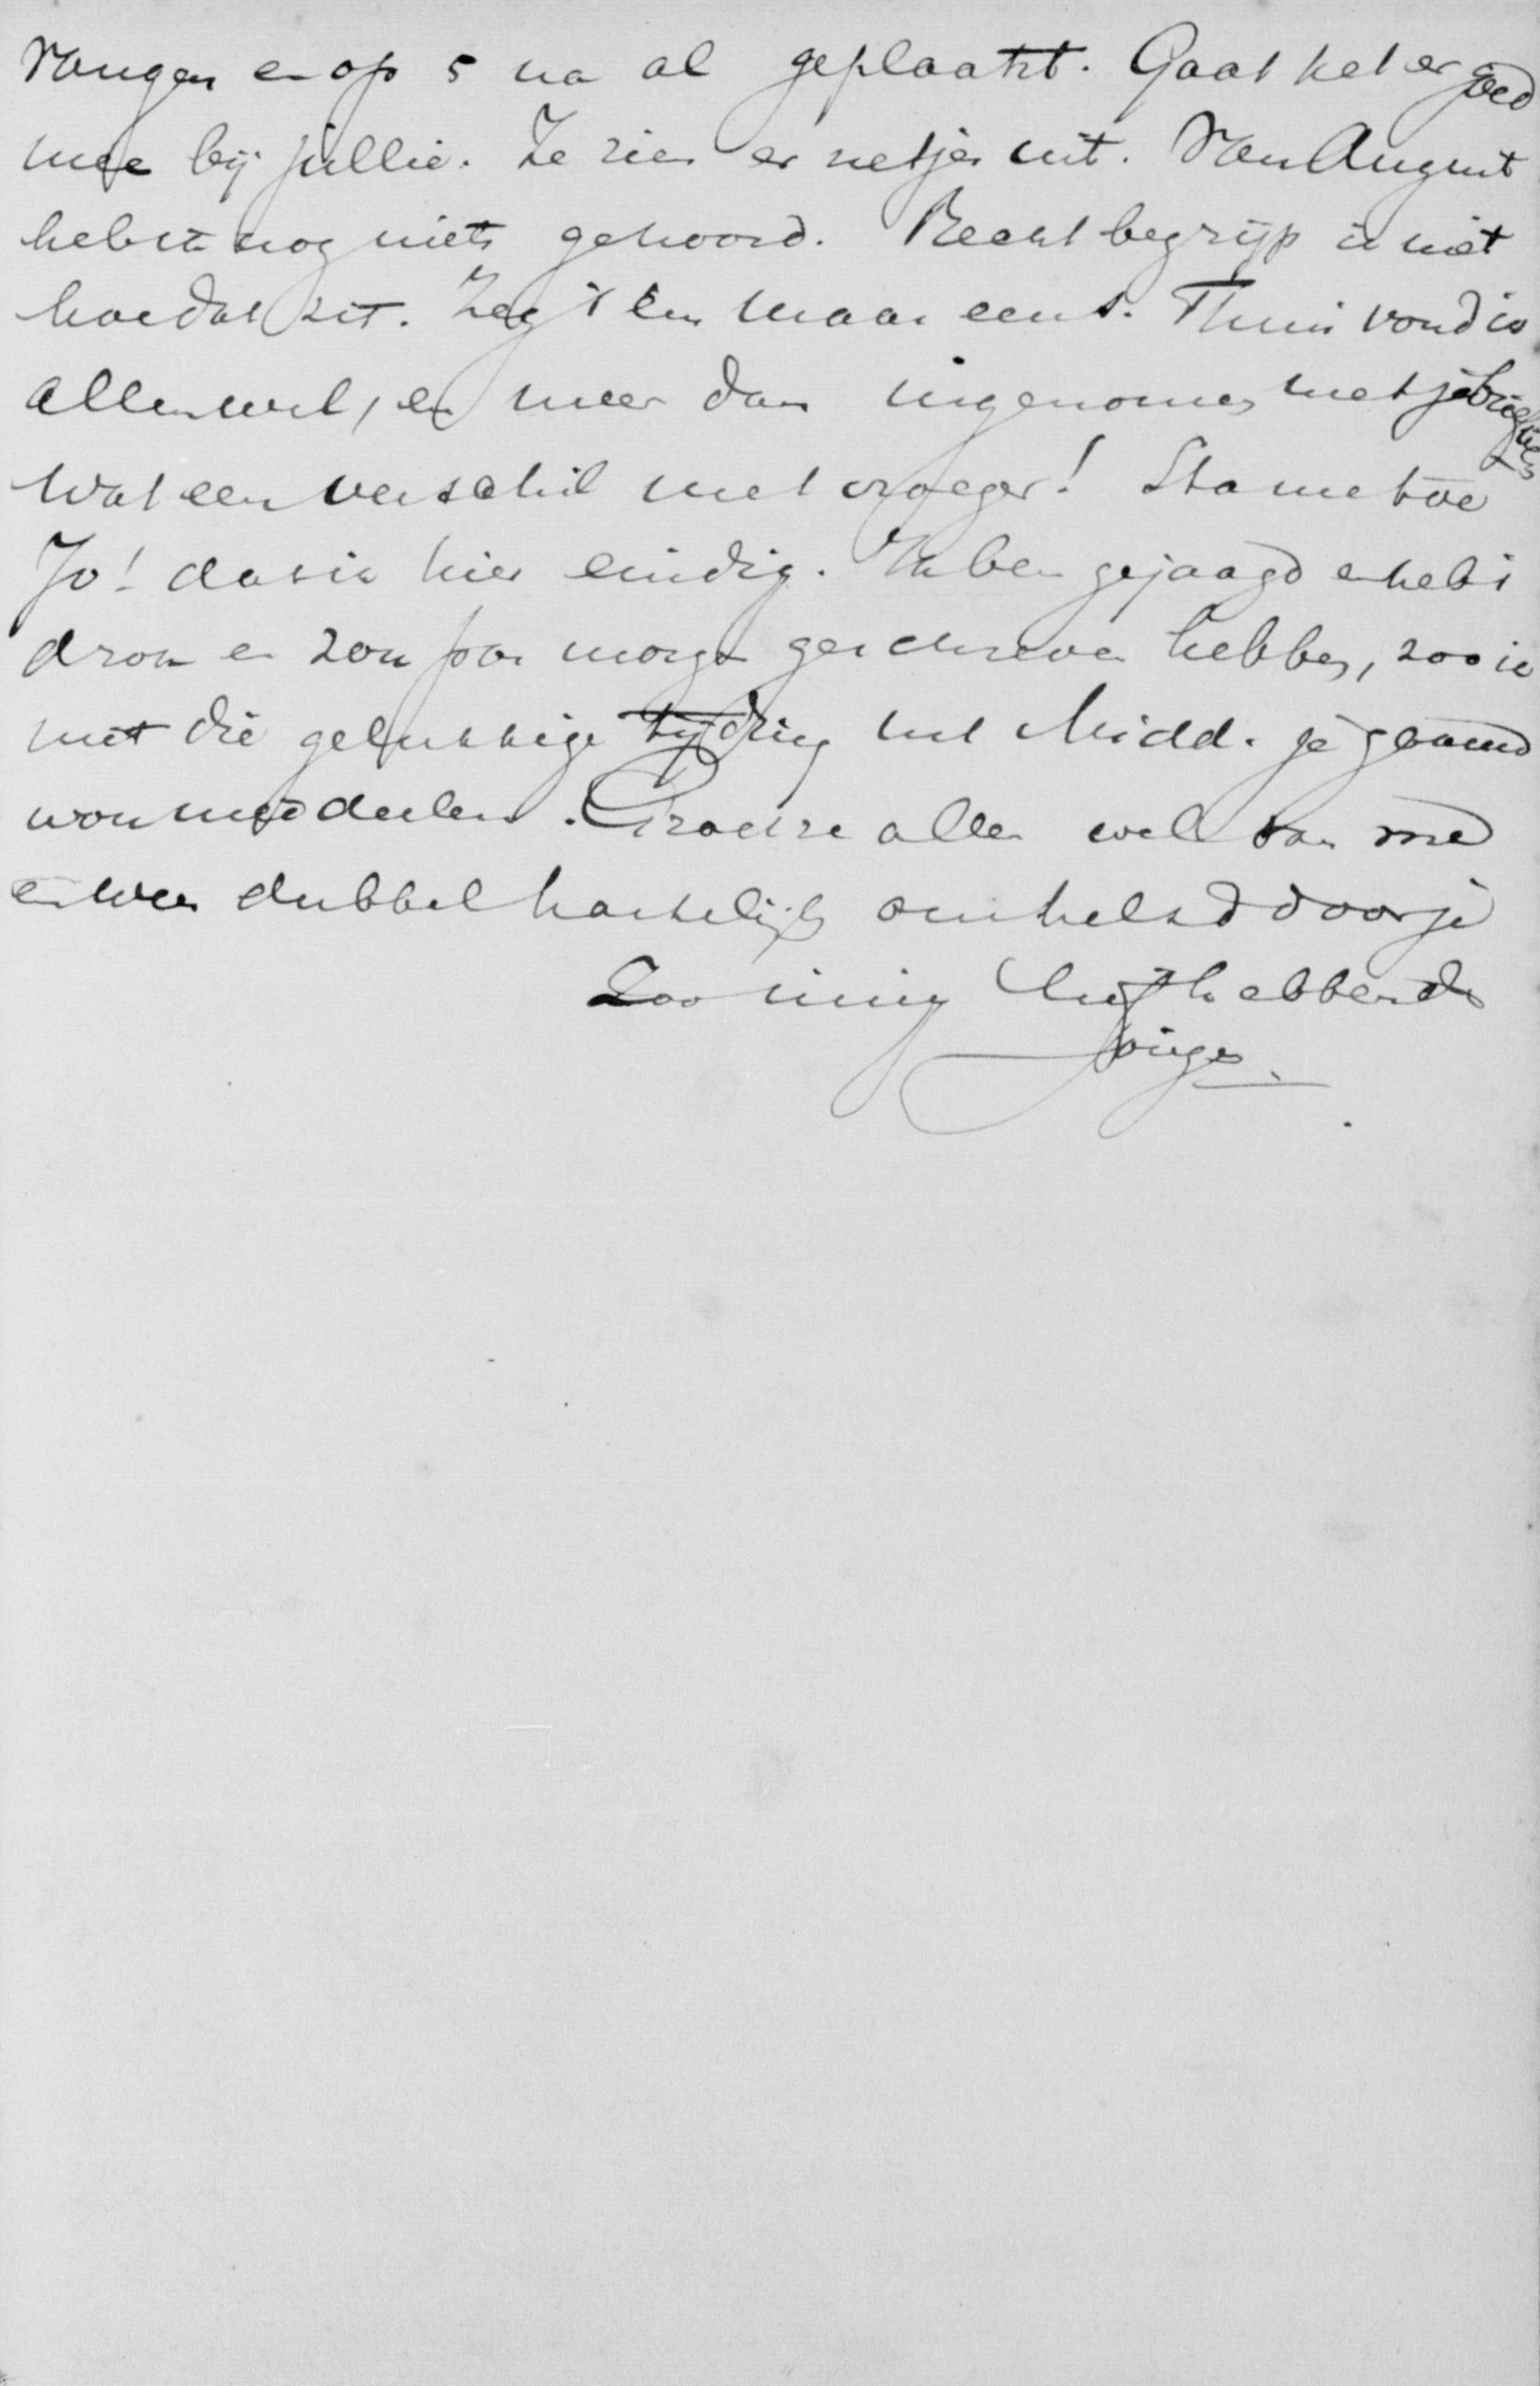 vangen en op 5 na al geplaatst. Gaat het er goed
mee bij jullie. Ze zien er netjes uit. Van August
heb ik nog niets gehoord. Recht begrijp ik niet
hoe dat zit. Zeg 't hem maar eens. Thuis vond ik
allen wel, en meer dan ingenomen met je briefjes
Wat een verschil met vroeger! Sta me toe
Jo! dat ik hier eindig. Ik ben gejaagd en heb 't
druk en zou pas morgen geschreven hebben, zoo ik
niet die gelukkige tijding uit Midd. je gaauw
wou mededeelen. Groet ze allen wel van me
en wees dubbel hartelijk omhelsd door je
Zoo innig liefhebbende
Jonge.